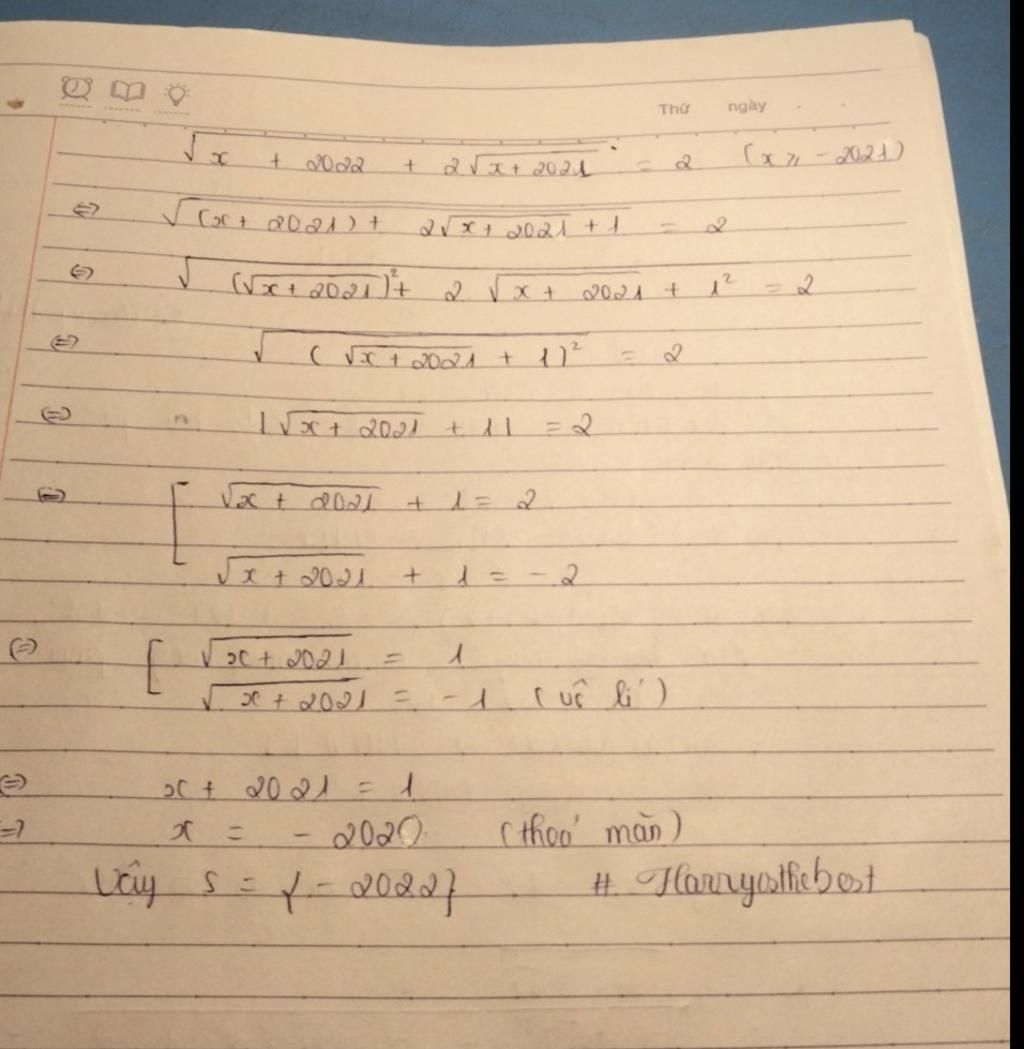 Thứ ngày
√(x + 2022 + 2√(x + 2021)) = 2 (x ⩾ -2021)
⇔ √((x + 2021) + 2√(x + 2021) + 1) = 2
⇔ √((√(x + 2021))² + 2 √(x + 2021) + 1²) = 2
⇔ √((√(x + 2021) + 1)²) = 2
⇔ |√(x + 2021) + 1| = 2
⇔ [ √(x + 2021) + 1 = 2
√(x + 2021) + 1 = -2
⇔ [ √(x + 2021) = 1
√(x + 2021) = -1 (vô lí)
⇔ x + 2021 = 1
⇒ x = -2020 (thoả mãn)
Vậy S = {-2022} # Harryisthebest